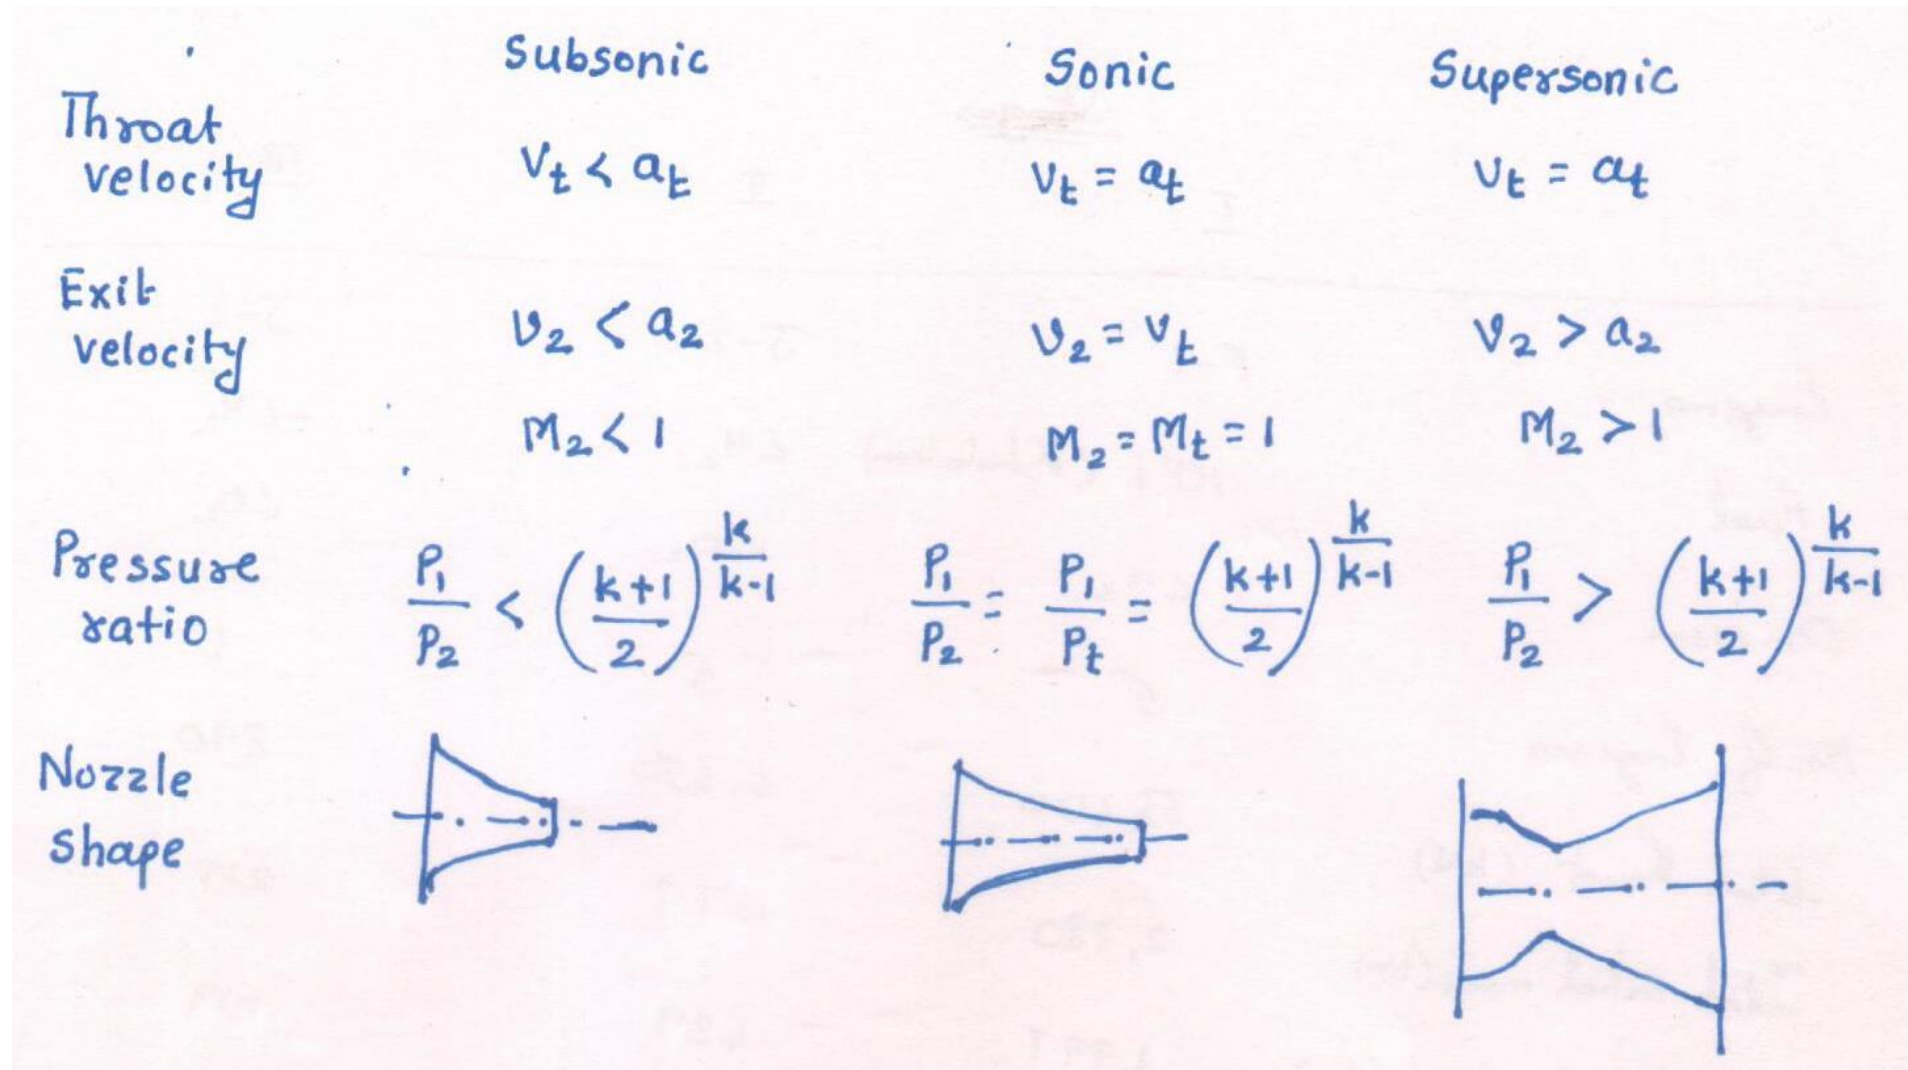 Subsonic Sonic Supersonic
Throat velocity v_t < a_t v_t = a_t v_t = a_t
Exit velocity v_2 < a_2 v_2 = v_t v_2 > a_2
M_2 < 1 M_2 = M_t = 1 M_2 > 1
Pressure ratio P_1/P_2 < ((k+1)/2)^(k/(k-1)) P_1/P_2 = P_1/P_t = ((k+1)/2)^(k/(k-1)) P_1/P_2 > ((k+1)/2)^(k/(k-1))
Nozzle shape